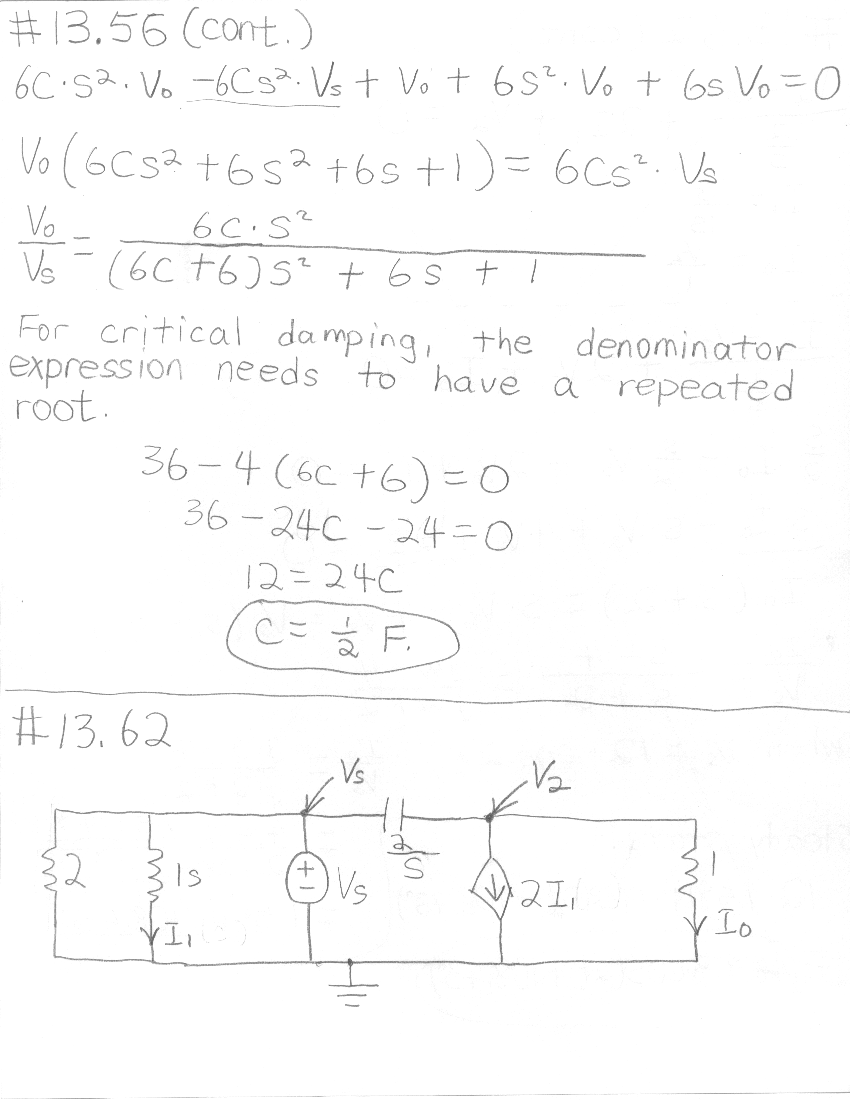 #13.56 (cont.)
6C·S². V₀ -6Cs²· Vs + V₀ + 6S². V₀ + 6s V₀ = 0
V₀(6Cs² + 6s² + 6s + 1) = 6Cs². Vs
V₀/Vs = 6C·S² / (6C + 6)S² + 6s + 1
For critical damping, the denominator
expression needs to have a repeated
root.
36 - 4 (6C + 6) = 0
36 - 24C - 24 = 0
12 = 24C
C = 1/2 F.
#13.62
Vs V₂
2 1s I₁ + − Vs 2/S 2I₁ 1 I₀